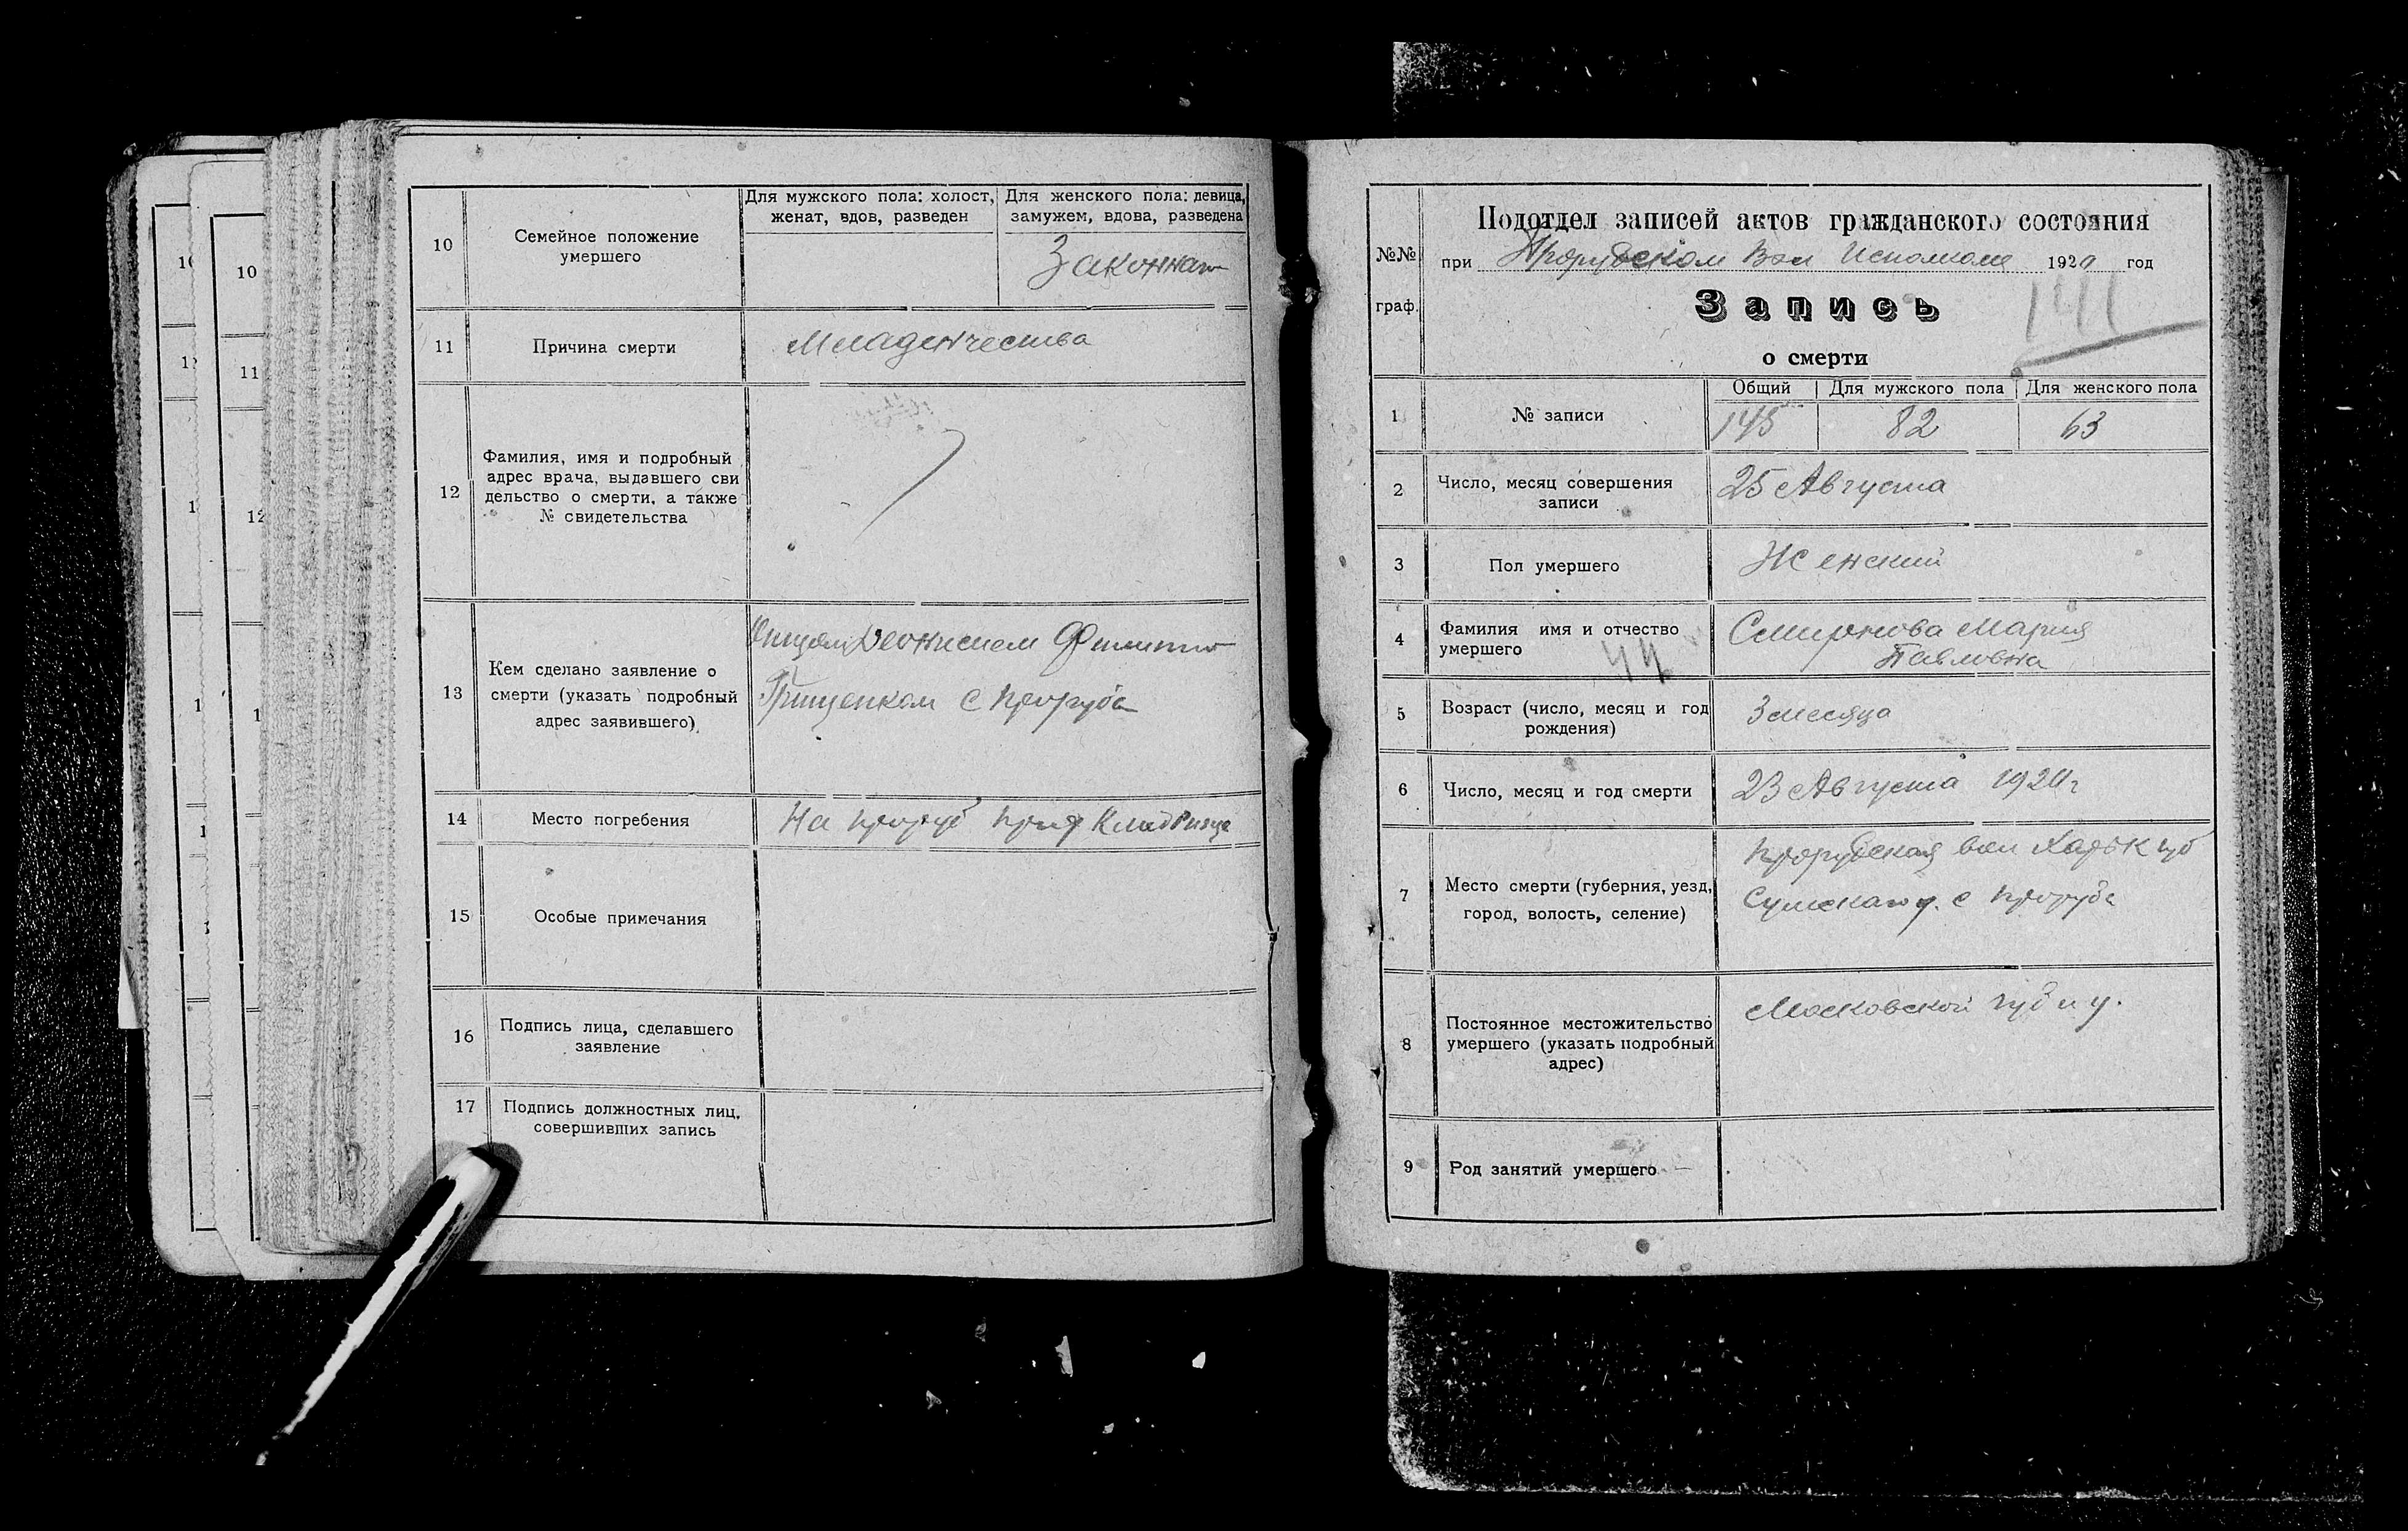 10
11
12
10
Семейное положение
умершего
Для мужского пола: холост,
женат, вдов, разведен
Для женского пола: девица,
замужем, вдова, разведена
Законная
11
Причина смерти
Младенчества
12
Фамилия, имя и подробный
адрес врача, выдавшего сви
дельство о смерти, а также
№ свидетельства
13
Кем сделано заявление о
смерти (указать подробный
адрес заявившего)
Отцом
Грищенком с Проруба
14
Место погребения
На Кладбище
15
Особые примечания
16
Подпись лица, сделавшего
заявление
17
Подпись должностных лиц,
совершивших запись
№№
граф.
Подотдел записей актов гражданского состояния
при Прорубском Вол Исполкоме 1920 год
Запись
о смерти
1
№ записи
Общий
Для мужского пола
Для женского пола
145
82
63
2
Число, месяц совершения
записи
25 Августа
3
Пол умершего
Женский
4
Фамилия имя и отчество
умершего
Смирнова Мария
Павловна
5
Возраст (число, месяц и год
рождения)
3 месяца
6
Число, месяц и год смерти
23 Августа 1920 г
7
Место смерти (губерния, уезд,
город, волость, селение)
Прорубская вол Харьк губ
Сумскаго у. с Проруба
8
Постоянное местожительство
умершего (указать подробный
адрес)
Московской губ и у.
9
Род занятий умершего